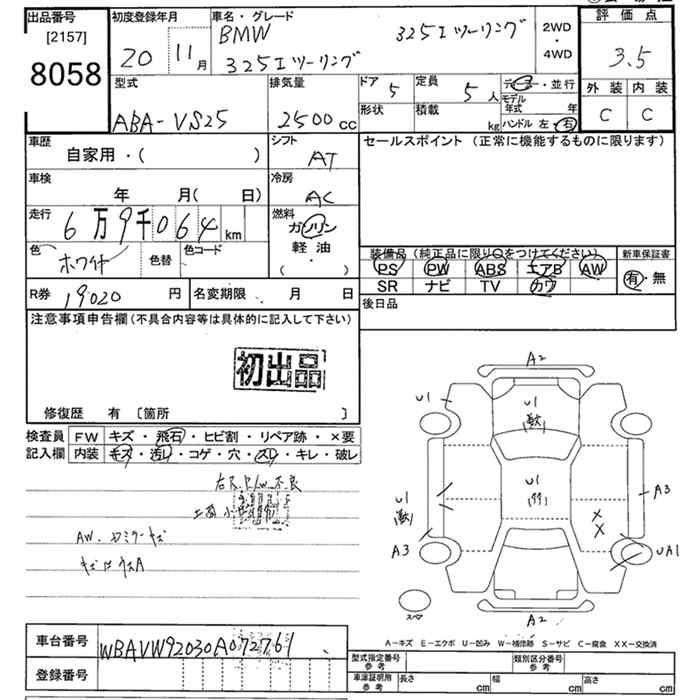 出品番号 初度登録年月 車名・グレード 2WD・4WD 評価点
[2157]
8058 20 11月 BMW 325I ツーリング 325I ツーリング 3.5
型式 排気量 ドア 5 定員 5人 ディーラー・並行 外装 内装
ABA-VS25 2500cc 形状 積載 kg モデル年式 年 ハンドル 左・右 C C
車歴 シフト セールスポイント (正常に機能するものに限ります)
自家用・( ) AT
車検 年 月( 日) 冷房 AC
走行 6万9千064km 燃料 ガソリン 軽油 ( ・ )
色 ホワイト 色替 色コード 装備品 (純正品に限り○をつけてください) 新車保証書
PS PW ABS エアB AW 有・無
SR ナビ TV カワ
R券 19020円 名変期限 月 日 後日品
注意事項申告欄 (不具合内容等は具体的に記入して下さい)
初出品
修復歴 有 [箇所 ]
検査員 FW キズ・飛石・ヒビ割・リペア跡・×要
記入欄 内装 キズ・汚れ・コゲ・穴・スレ・キレ・破レ
AW.
A2
U1 U1
U1 U1
A3
A3 UA1
××
スペア
A2
A-キズ E-エクボ U-凹み W-補修跡 S-サビ C-腐食 XX-交換済
車台番号 WBAVW92030A072761
型式指定番号 参考 類別区分番号 参考
登録番号 車庫証明用 参考 長さ cm 幅 cm 高さ cm